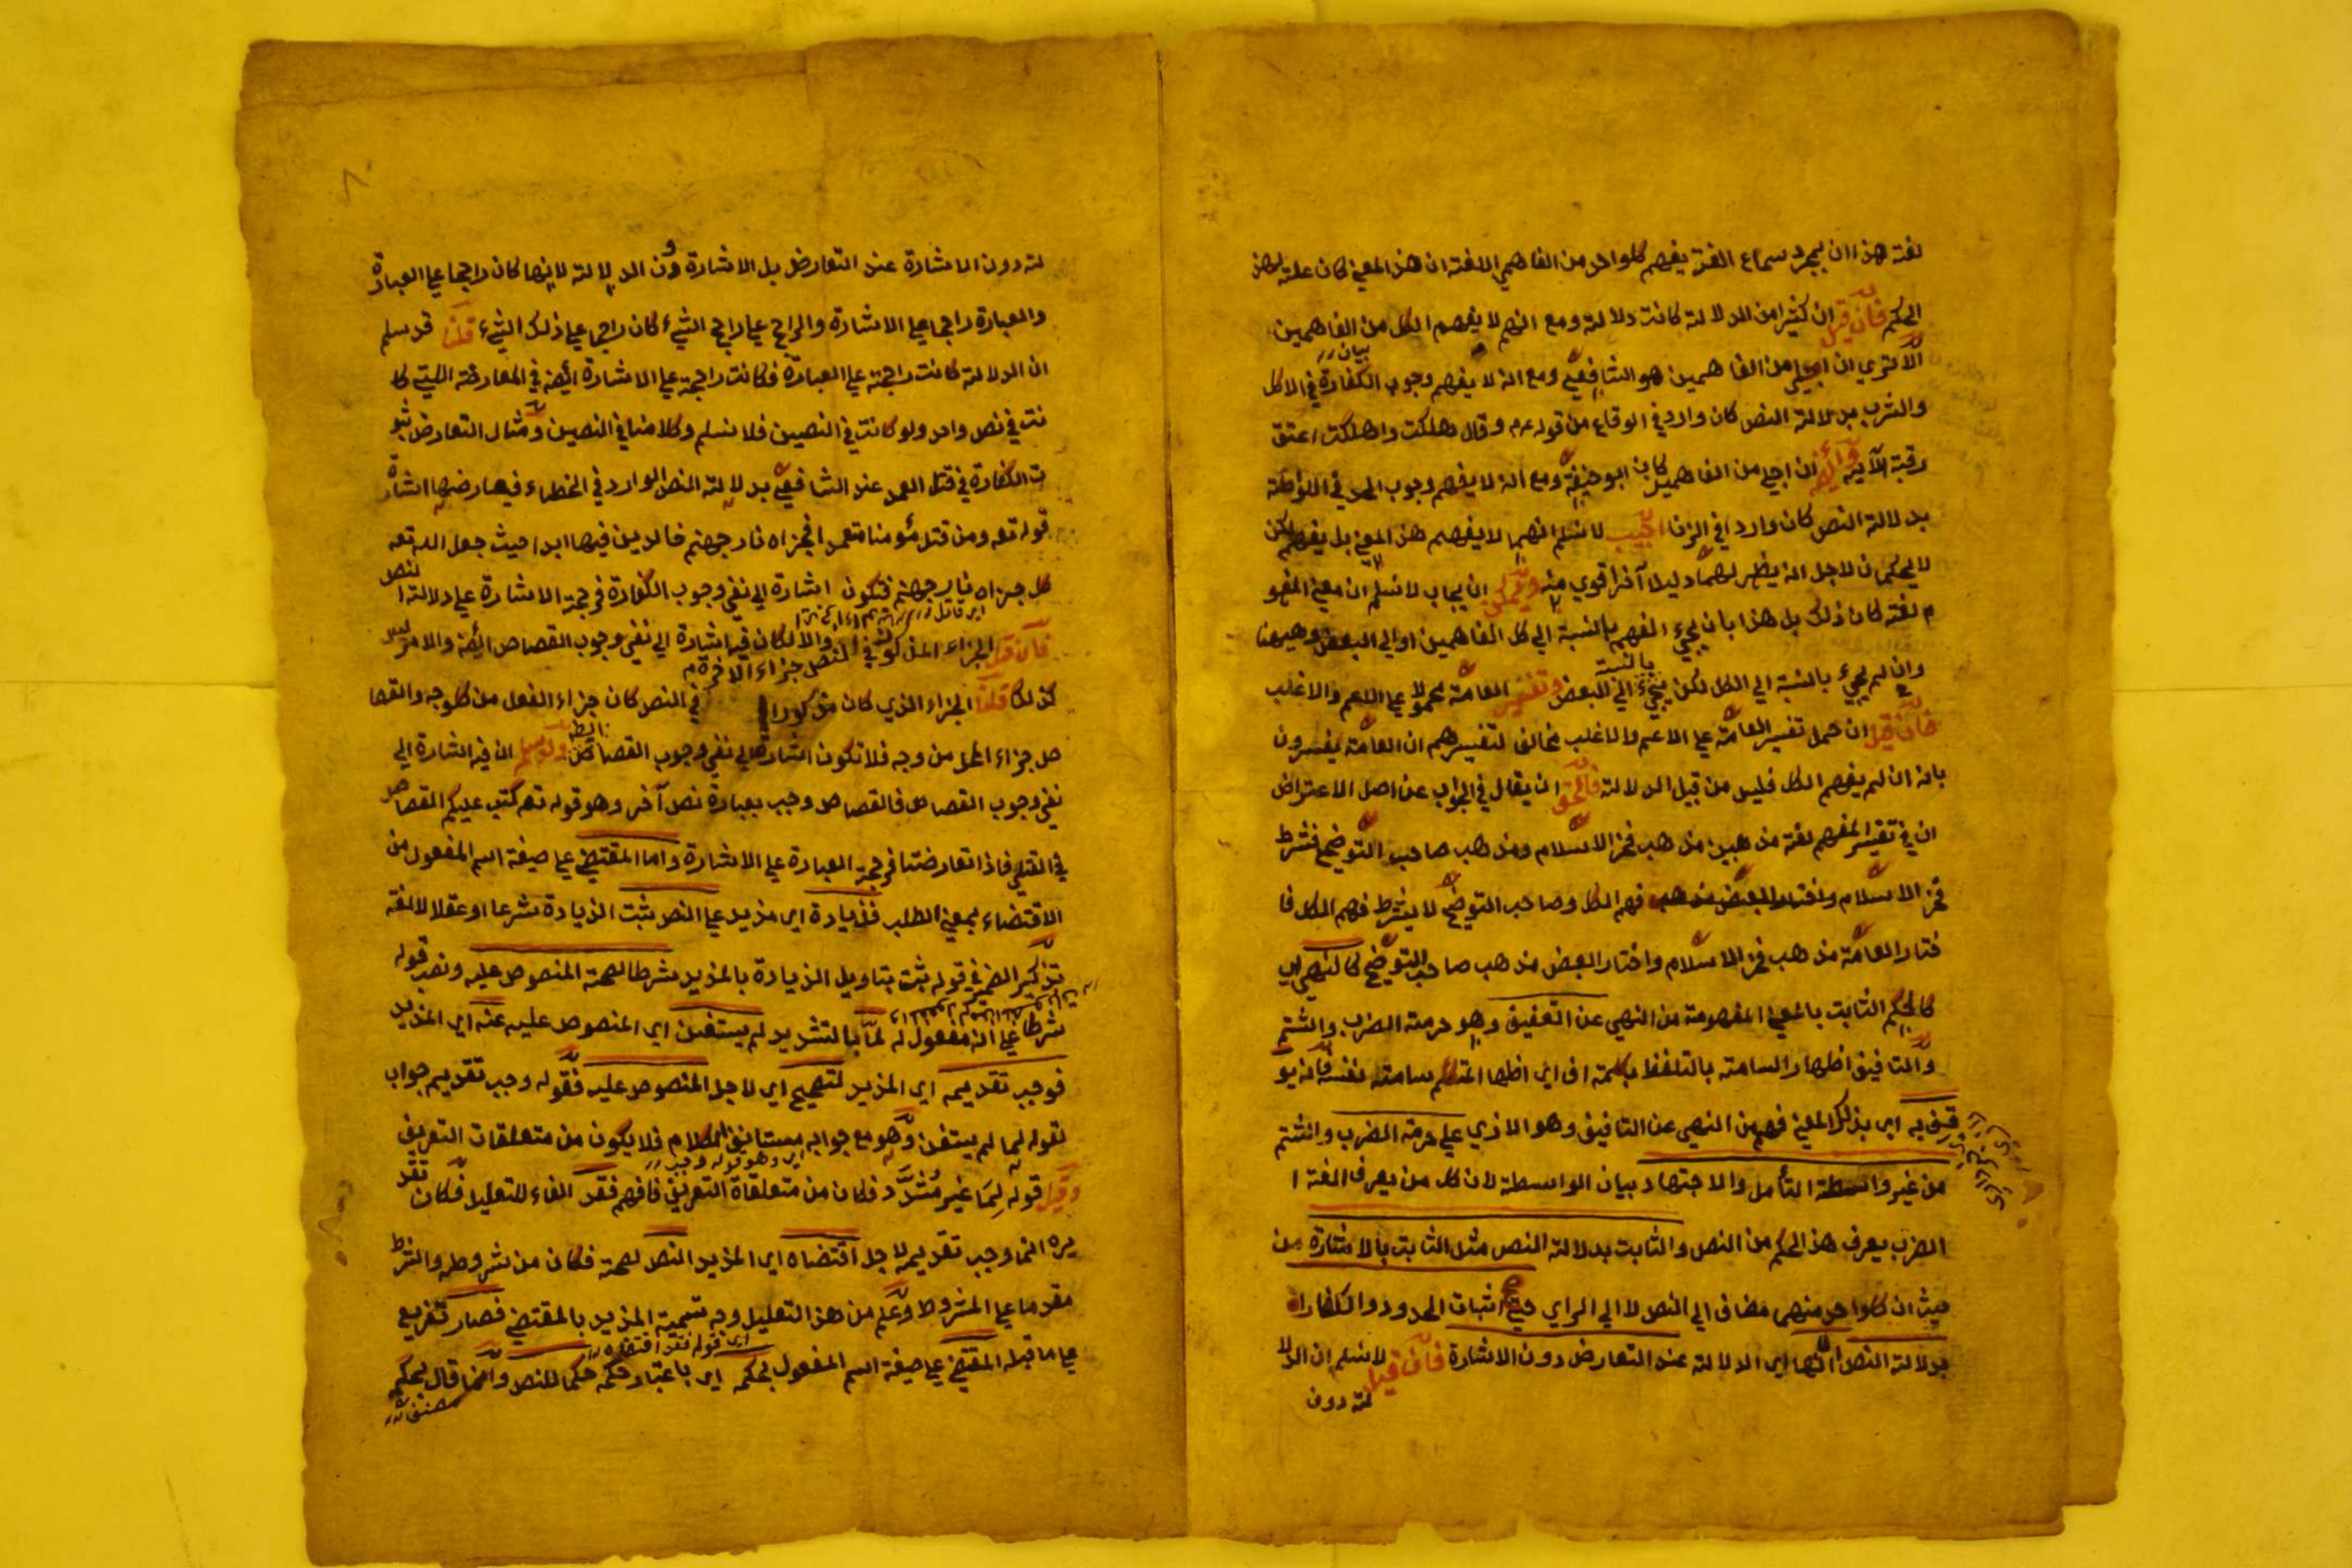 لغة هذا ان بمجرد سماع اللغة يفهم كلواحد من الفاهمي اللغة ان هذا المعنى كان علة لهذا
الحكم فان قيل ان كثيرا من الدلالة كانت دلالة ومع انهم لا يفهم الكل من الفاهمين
الا تري ان اجلي من الفاهمين هو الشافعي ومع انه لا يفهم وجوب الكفارة في الاكل
بيان
والشرب بدلالة النص كان وارد في الوقاع من قوله عم وقال هلكت واهلكت اعتق
رقبة الآيه وايضا ان اجلي من الفاهمين كان ابو حنيفة ومع انه لا يفهم وجوب الحد في اللوطة
بدلالة النص كان وارد في الزنا اجيب لا نسلم انهما لا يفهم هذا المعنى بل يفهم لكن
لا يحكمان لاجل انه يظهر لهما دليلا آخر اقوي منه ويمكن ان يجاب لا نسلم ان معنى المفهو
م لغة كان ذلك بل هذا بان يجيء المفهم بالنسبة الي كل الفاهمين او الي البعض وههنا
وان لم يجيء بالنسبة الي الكل لكن يجيء الي البعض وتفسير العامة محمول علي الاعم والاغلب
بالنسبة
فان قيل ان حمل تفسير العامة علي الاعم والاغلب مخالف لتفسيرهم ان العامة يفسرون
بانه ان لم يفهم الكل فليس من قبيل الدلالة فالحق ان يقال في الجواب عن اصل الاعتراض
ان في تفسير المفهم لغة مذهبين مذهب فخر الاسلام ومذهب صاحب التوضيح فشرط
فخر الاسلام فهم الكل وصاحب التوضيح لا يشرط فهم الكل فا
ختار العامة مذهب فخر الاسلام واختار البعض مذهب صاحب التوضيح كالنهي اي
كالحكم الثابت بالمعنى المفهومة من النهي عن التعفيف وهو حرمة الضرب والشتم
والتافيف اظهار السامة بالتلفظ بكلمة اف اي اظهار المتكلم سامته نفسه فانه يو
قف به اي بذلك المعنى فهم من النهي عن التافيف وهو الاذي علي حرمة الضرب والشتم
من غير واسطة التأمل والاجتهاد بيان الواسطة لان كل من يعرف المغة ا
الضرب يعرف هذا الحكم من النص والثابت بدلالة النص مثل الثابت بالاشارة من
حيث ان كلواحد منهي مضاف الي النص لا الي الراي حتي صح اثبات الحدود والكفارات
بدلالة النص الا انها اي الدلالة عند التعارض دون الاشارة فان قيل لا نسلم ان الدلا
لة دون
لة دون الاشارة عند التعارض بل الاشارة دون الدلالة لانها كان راجحا علي العبارة
والعبارة راجحا علي الاشارة والراجح علي راجح الشيء كان راجحا علي ذلك الشيء قلنا قد سلم
ان الدلالة كانت راجحة علي العبارة فكانت راجحة علي الاشارة ايضا في المعارضة اللتي كا
نت في نص واحد ولو كانت في النصين فلا نسلم وكلامنا في النصين ومثال التعارض ثبو
ت الكفارة في قتل العمد عند الشافعي بدلالة النص الوارد في الخطاء فيعارضها اشارة
قوله تعه ومن قتل مؤمنا متعمدا فجزاه نار جهنم خالدين فيها ابدا حيث جعل الله تعه
كل جزاه نار جهنم فتكون اشارة الي نفي وجوب الكفارة فرجحة الاشارة علي دلالة النص
فان قيل الجزاء المذكور في النص جزاء الاخرة والا لكان فيه اشارة الي نفي وجوب القصاص ايضا والامر ليس
كذلك قلنا الجزاء الذي كان مذكورا في النص كان جزاء الفعل من كل وجه والقصا
ص جزاء المحل من وجه فلا تكون اشارة الي نفي وجوب القصاص ايضا ولو سلم ان فيه اشارة الي
نفي وجوب القصاص فالقصاص وجب بعبارة نص آخر وهو قوله تعه كتب عليكم القصاص
في القتلي فاذا تعارضتا فرجحة العبارة علي الاشارة واما المقتضي علي صيغة اسم المفعول من
الاقتضاء بمعنى الطلب فزيادة اي مزيد علي النص ثبت الزيادة شرعا او عقلا لا لغة
تذكير الضمير في قوله ثبت بتاويل الزيادة بالمزيد شرطا لصحة المنصوص عليه ونصب قوله
شرطا علي انه مفعول له لمّا بالتشديد لم يستغن اي المنصوص عليه عنه اي المزيد
فوجب تقديمه اي المزيد لتصحيح اي لاجل المنصوص عليه فقوله وجب تقديم جواب
لقوله لما لم يستغن وهو مع جوابه مستانف الكلام فلا يكون من متعلقات التعريف
اي وهو قوله وجب
وقيل قوله لِمَا غير مُشدّد فكان من متعلقاة التعريف فافهم فقد الفاء للتعليل فكان تقد
يره انما وجب تقديمه لاجل اقتضاه اي المزيد النص لصحة فكان من شروطه والشرط
مقدما علي المشروط وعلم من هذا التعليل وجه تسمية المزيد بالمقتضي فصار تفريع
اي قوله فقد اقتضاه
علي ما قبله المقتضي علي صيغة اسم المفعول بحكمه اي باعتبار حكمه حكما للنص وانما قال بحكم
مصنف